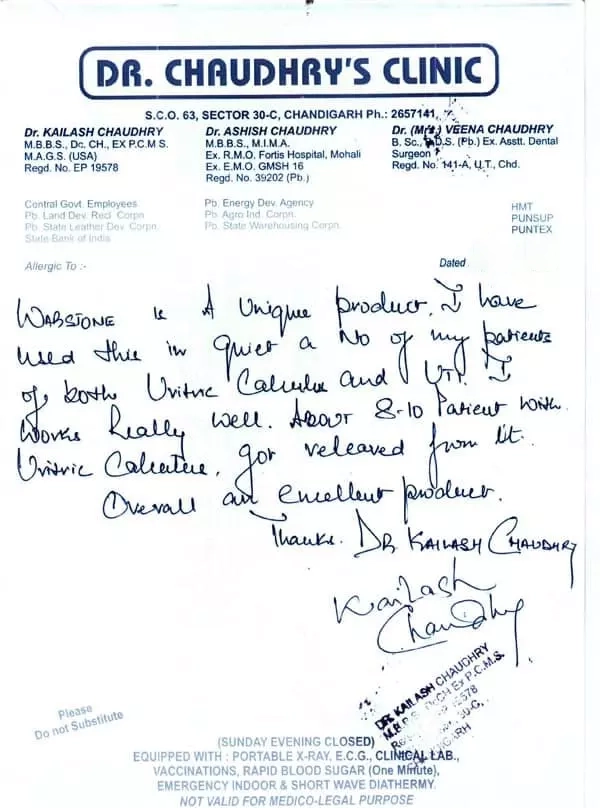 DR. CHAUDHRY'S CLINIC
S.C.O. 63, SECTOR 30-C, CHANDIGARH Ph.: 2657141,
Dr. KAILASH CHAUDHRY
M.B.B.S., Dc. CH., EX P.C.M.S.
M.A.G.S. (USA)
Regd. No. EP 19578
Dr. ASHISH CHAUDHRY
M.B.B.S., M.I.M.A.
Ex. R.M.O. Fortis Hospital, Mohali
Ex. E.M.O. GMSH 16
Regd. No. 39202 (Pb.)
Dr. (Mrs.) VEENA CHAUDHRY
B. Sc., B.D.S. (Pb.) Ex. Asstt. Dental
Surgeon
Regd. No. 141-A, U.T., Chd.
Central Govt. Employees
Pb. Land Dev. Recl. Corpn.
Pb. State Leather Dev. Corpn.
State Bank of India
Pb. Energy Dev. Agency
Pb. Agro Ind. Corpn.
Pb. State Warehousing Corpn.
HMT
PUNSUP
PUNTEX
Allergic To :-
Dated
WABSTONE is A Unique product. I have
used this in quiet a No of my patients
of both Uritric Calculi and UTI. I
Works Really Well. About 8-10 Patient with
Uritric got releaved from it.
Overall an excellent product.
Thanks. DR KAILASH CHAUDHRY
Kailash
Chaudhry
DR. KAILASH CHAUDHRY
M.B.B.S. DCH Ex P.C.M.S.
19578
30-C,
Please
Do not Substitute
(SUNDAY EVENING CLOSED)
EQUIPPED WITH : PORTABLE X-RAY, E.C.G., CLINICAL LAB.,
VACCINATIONS, RAPID BLOOD SUGAR (One Minute),
EMERGENCY INDOOR & SHORT WAVE DIATHERMY.
NOT VALID FOR MEDICO-LEGAL PURPOSE